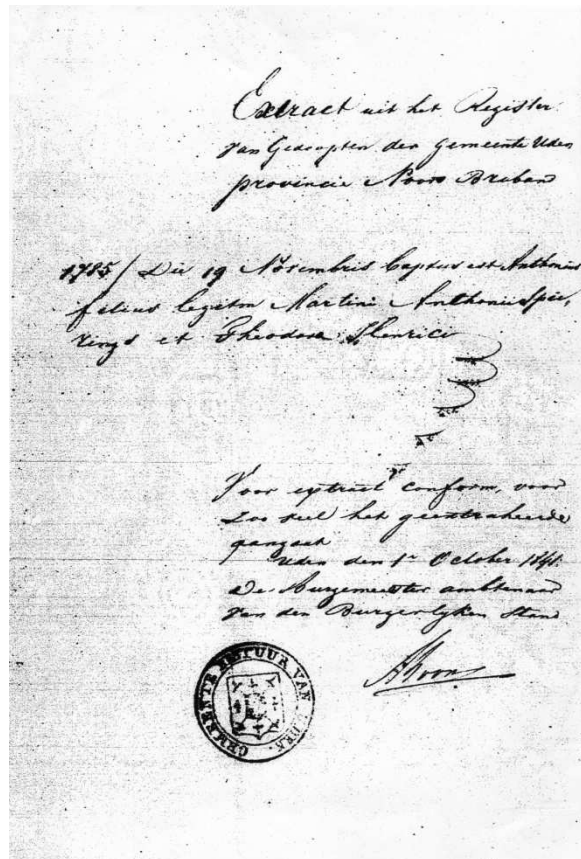 Extract uit het Register
van Gedoopten der Gemeente Uden
provincie Noord Braband
1785 / Die 19 Novembris baptus est Anthonius
filius legitm Martini Anthonii Spie,
rings et Theodora Henrici
Voor extract conform, voor
zoo veel het geextraheerde
aangaat
Uden den 1e October 1841.
De Burgemeester ambtenaar
van den Burgerlyken Stand
GEMEENTE BESTUUR VAN UDEN.